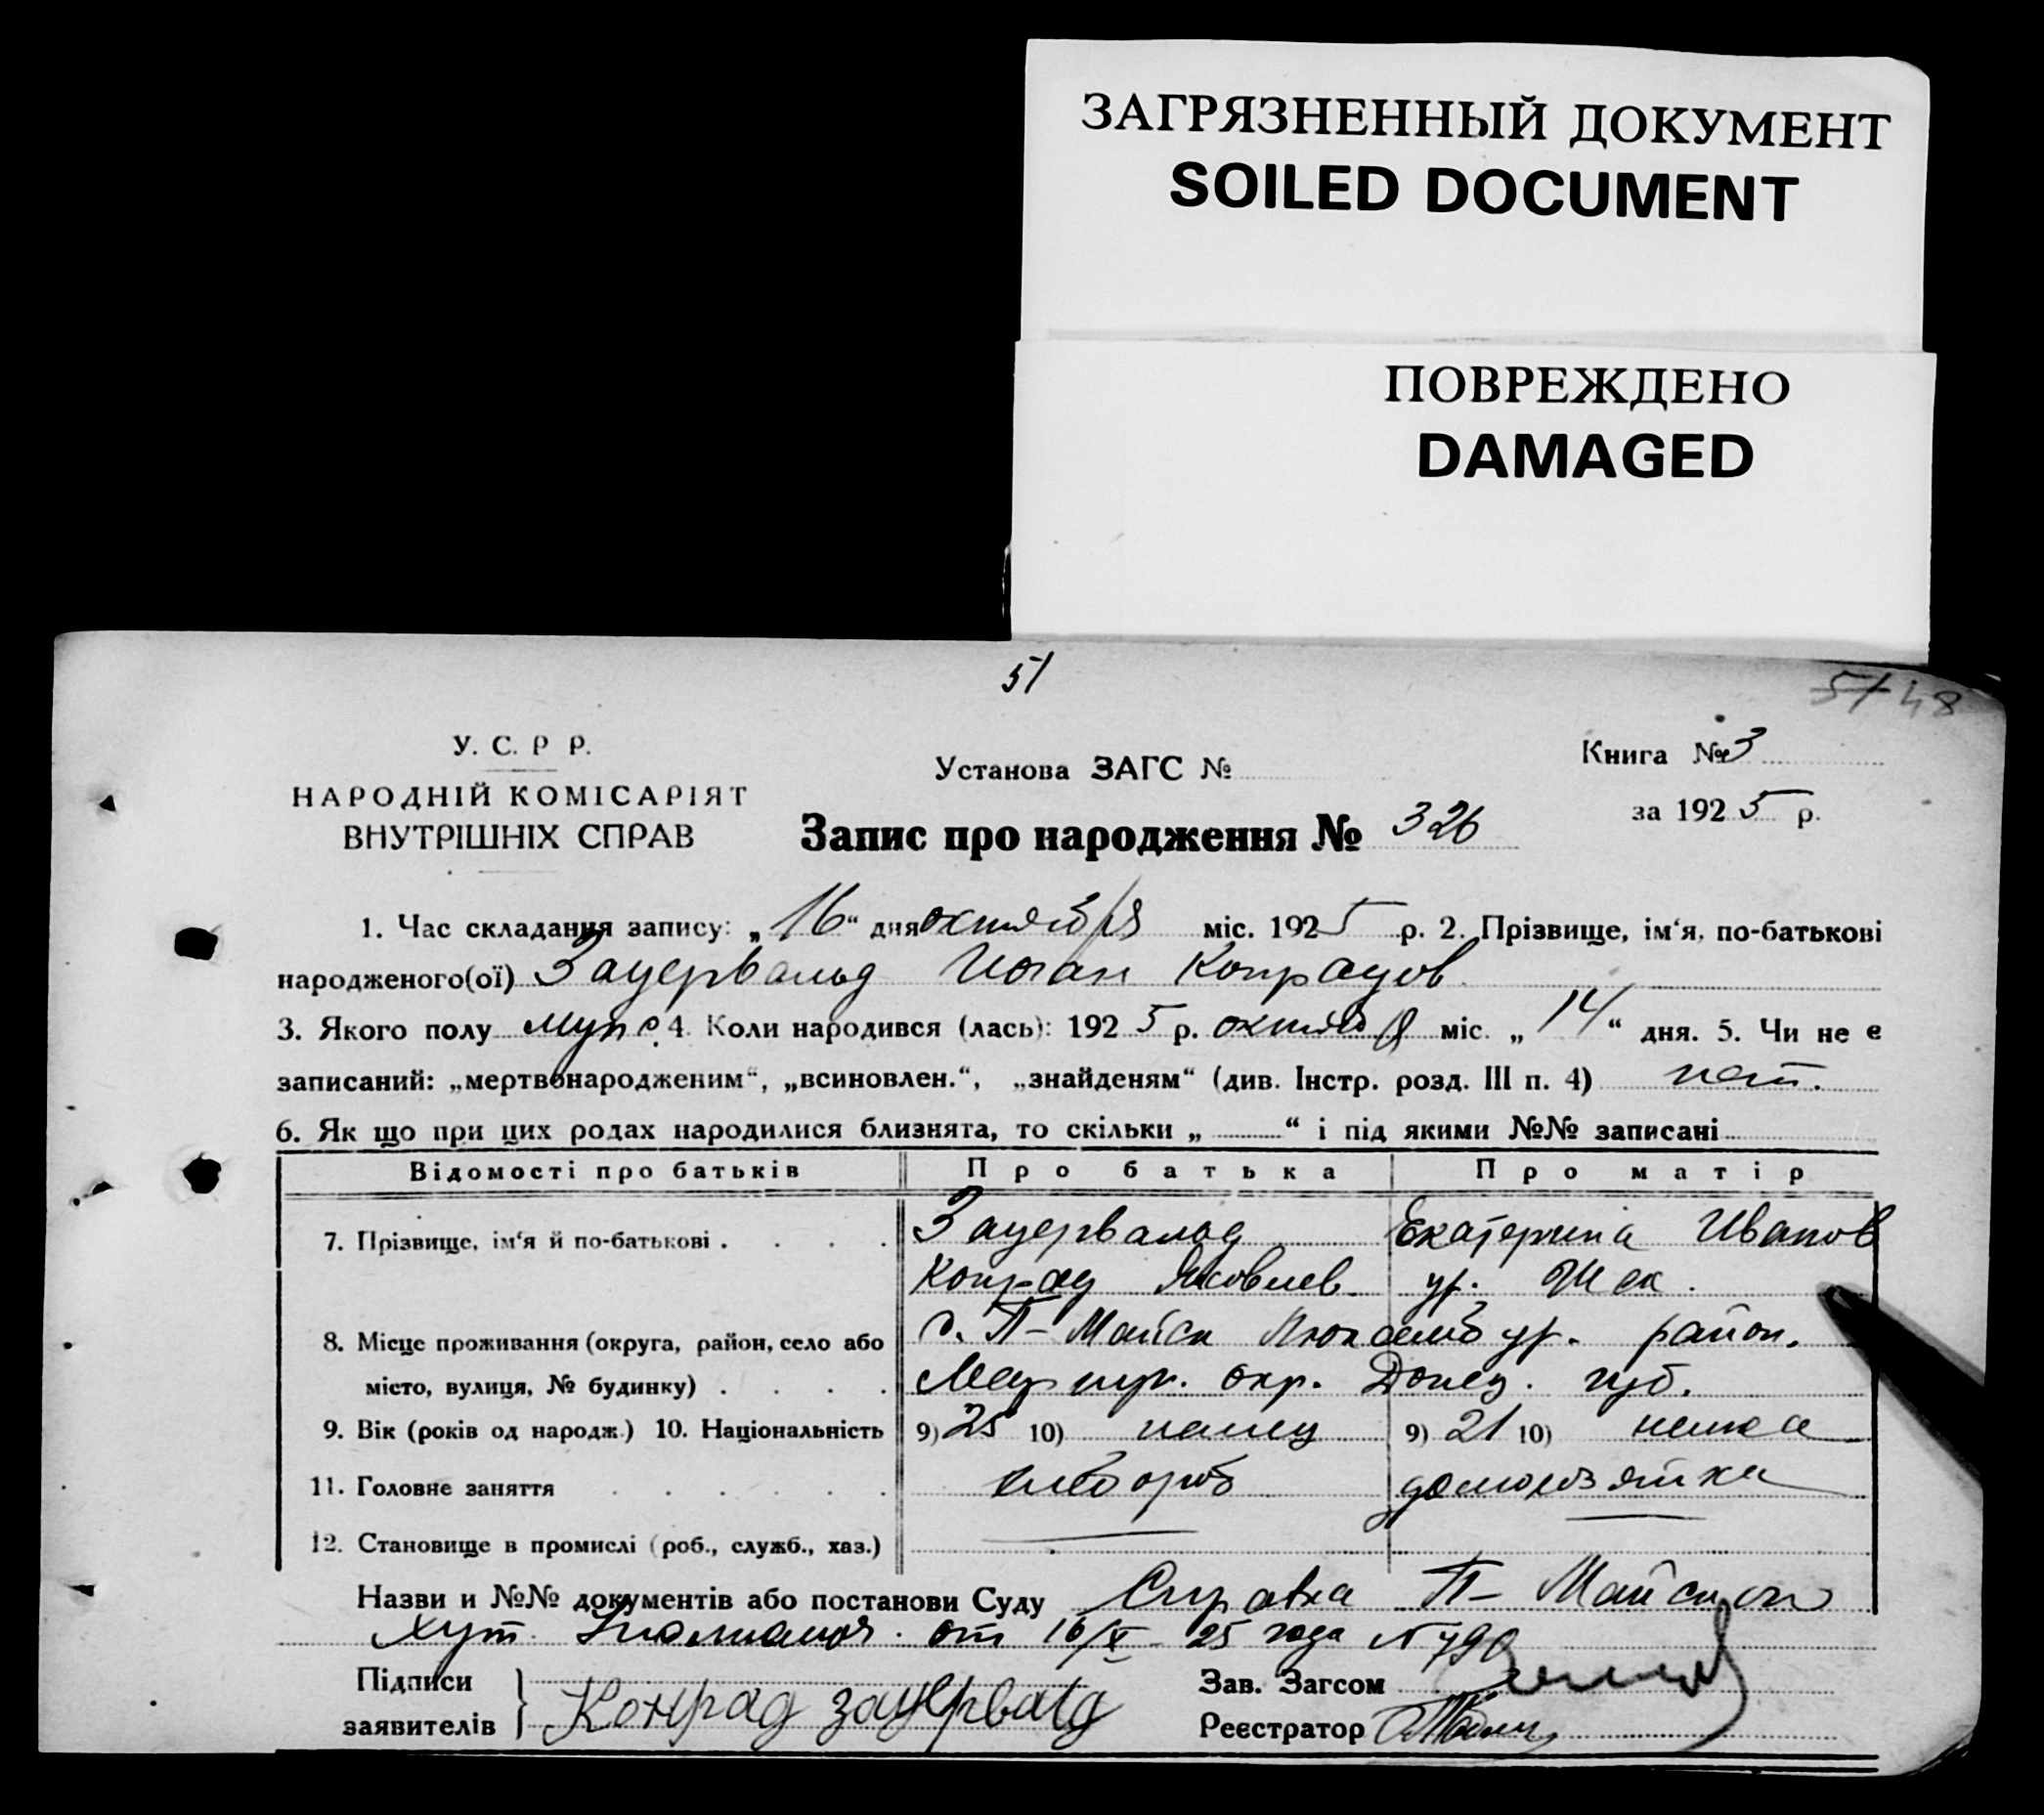 ЗАГРЯЗНЕННЫЙ ДОКУМЕНТ
SOILED DOCUMENT
ПОВРЕЖДЕНО
DAMAGED
51
51 48
У. С. Р Р.
НАРОДНІЙ КОМІСАРІЯТ
ВНУТРІШНІХ СПРАВ
Установа ЗАГС №
Книга № 3
за 1925 р.
Запис про народження № 326
1. Час складання запису: „16“ дня октября міс. 1925 р. 2. Прізвище, ім‘я, по-батькові
народженого(ої) Зауервальд Иоган Конрадов
3. Якого полу муж. 4. Коли народився (лась): 1925 р. октября міс. „14“ дня. 5. Чи не є
записаний: „мертвонародженим“, „всиновлен.“, „знайденям“ (див. Інстр. розд. III п. 4) нет.
6. Як що при цих родах народилися близнята, то скільки „ “ і під якими №№ записані
Відомості про батьків Про батька Про матір
7. Прізвище, ім‘я й по-батькові Зауервальд Екатерина Иванов
Конрад Яковлев ур.
8. Місце проживання (округа, район, село або П-Майск район.
місто, вулиця, № будинку) окр. Донец. губ.
9. Вік (років од народж.) 10. Національність 9) 25 10) немец 9) 21 10) немка
11. Головне заняття хлебороб домохозяйка
12. Становище в промислі (роб., служб., хаз.)
Назви и №№ документів або постанови Суду Справка П-Майского
хут. от 16/X 25 года № 790
Підписи
заявителів Конрад зауервалд
Зав. Загсом
Реєстратор